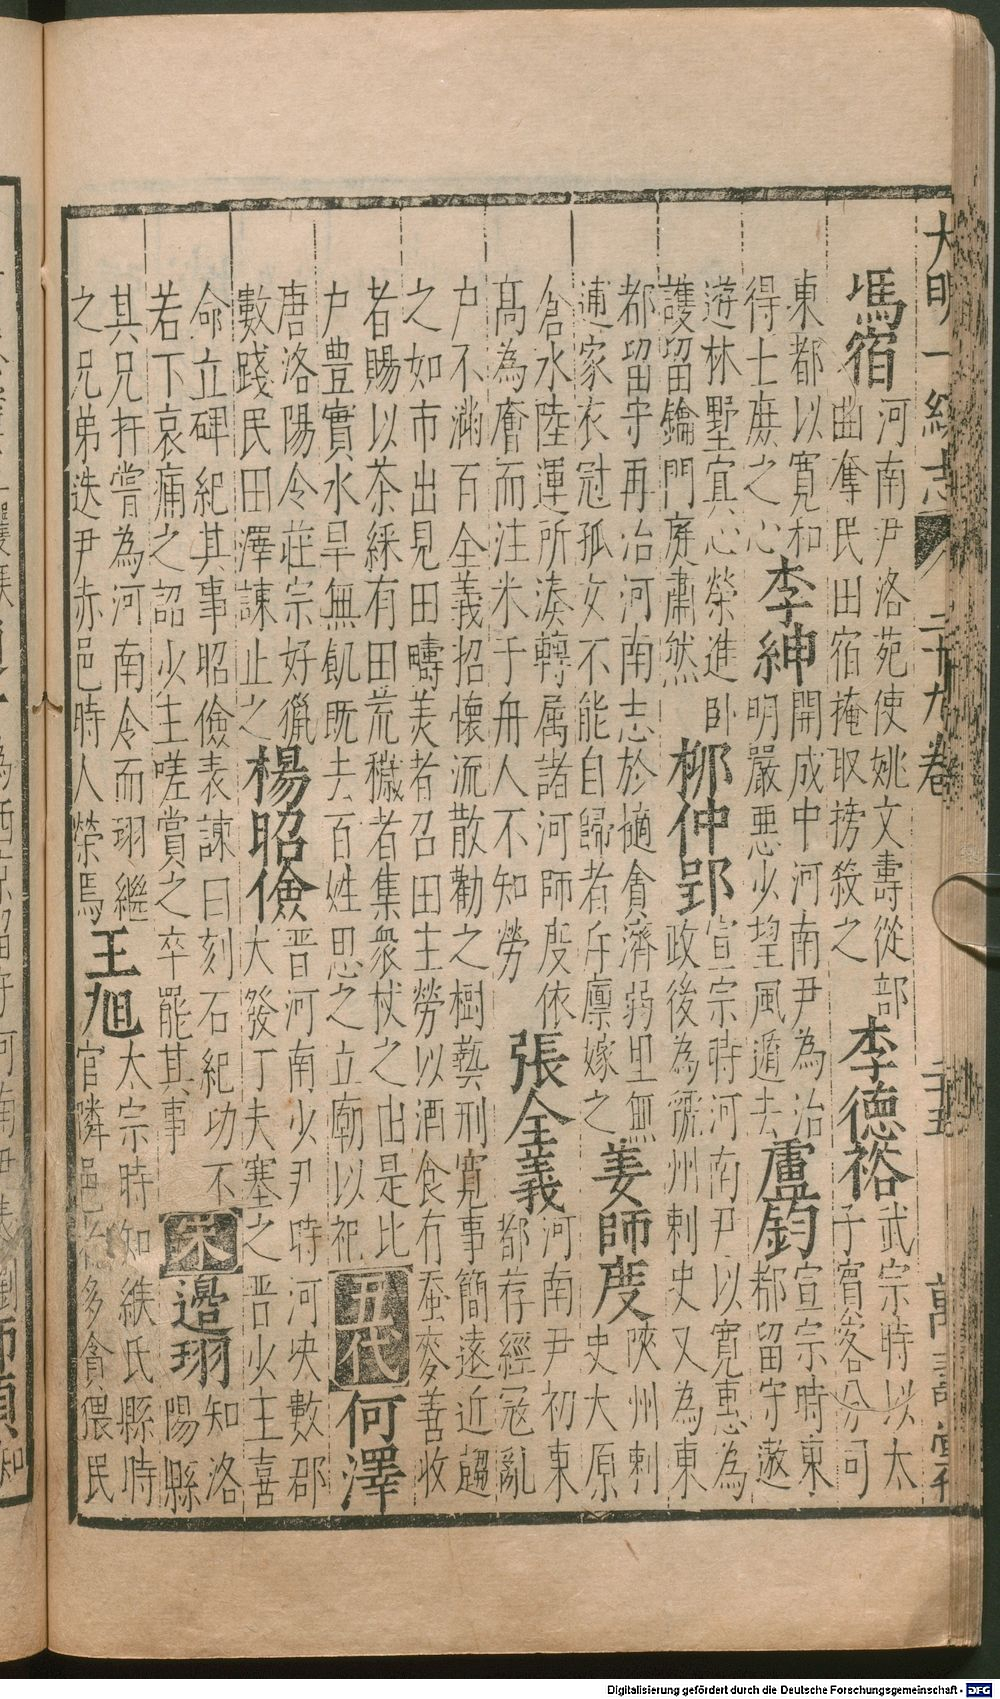 大明一統志 二十九卷 二十五 萬壽堂刊
馮宿
河南尹洛苑使姚文壽從部
曲奪民田宿掩取搒殺之
李德裕
武宗時以太
子賓客分司
東都以寬和
得士庶之心
李紳
開成中河南尹為治
明嚴惡少望風遁去
盧鈞
宣宗時東
都留守遨
遊林墅宜心榮進卧
護留鑰門庭肅然
柳仲郢
宣宗時河南尹以寬惠為
政後為虢州刺史又為東
都留守再治河南志於擿貪濟弱里無
逋家衣冠孤女不能自歸者斥廩嫁之
姜師度
陝州刺
史大原
倉水陸運所湊轉屬諸河師度依
高為廥而注米于舟人不知勞
張全義
河南尹初東
都荐經冦亂
户不滿百全義招懷流散勸之樹藝刑寬事簡遠近趨
之如市出見田疇美者召田主勞以酒食有蚕麥善收
者賜以茶綵有田荒穢者集衆杖之由是比
户豊實水旱無飢既去百姓思之立廟以祀
五代
何澤
唐洛陽令莊宗好獵
數踐民田澤諌止之
楊昭儉
晋河南少尹時河决數郡
大發丁夫塞之晋少主喜
命立碑紀其事昭儉表諌曰刻石紀功不
若下哀痛之詔少主嗟賞之卒罷其事
宋
邊珝
知洛
陽縣
其兄玗嘗為河南令而珝繼
之兄弟迭尹赤邑時人榮焉
王旭
太宗時知緱氏縣時
官隣邑多貪猥民
Digitalisierung gefördert durch die Deutsche Forschungsgemeinschaft - DFG